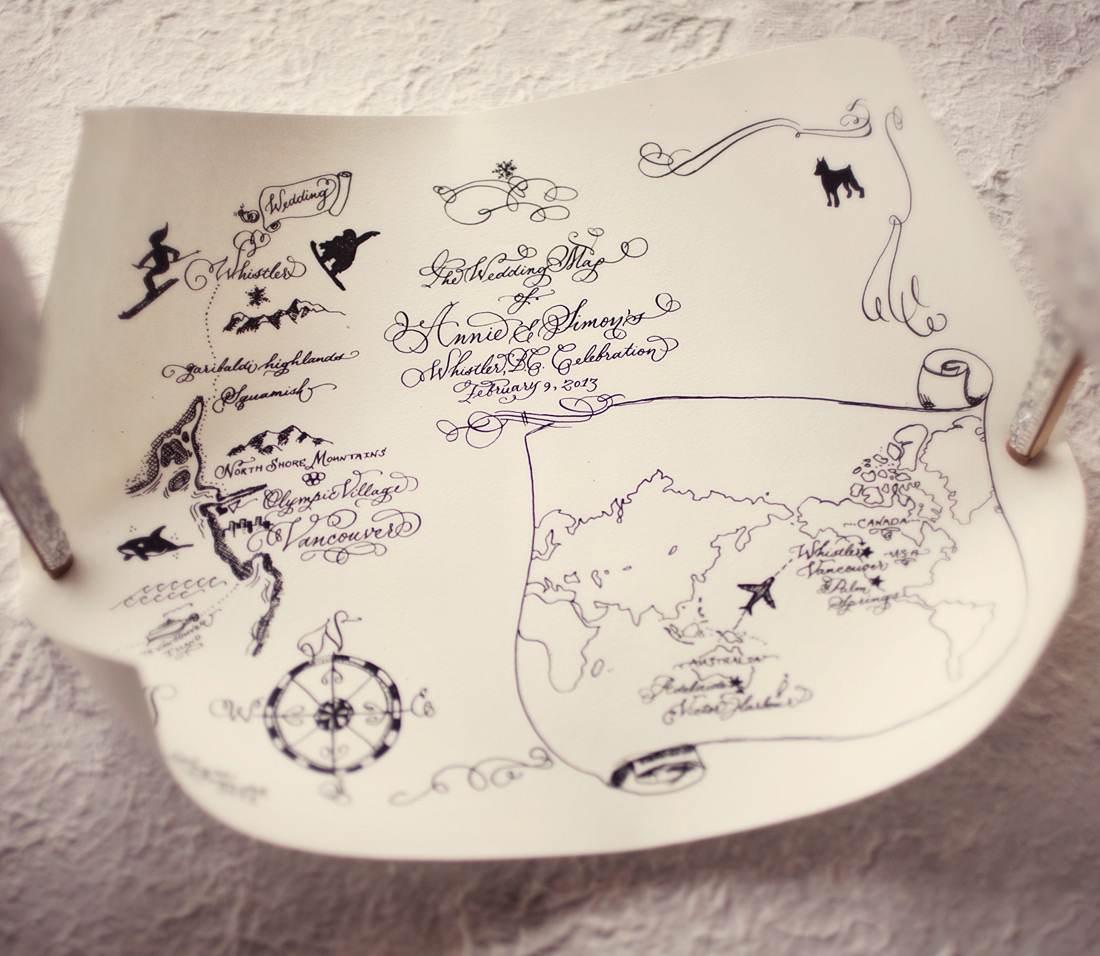 Wedding
Whistler
garibaldi highlands
Squamish
North Shore Mountains
Olympic Village
Vancouver
to Vancouver
Island
The Wedding Map
of
Annie & Simon's
Whistler, B.C. Celebration
February 9, 2013
N
W
E
S
CANADA
Whistler
USA
Vancouver
Palm
Springs
AUSTRALIA
Adelaide
Victor Harbour